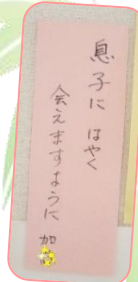 息子に はやく
会えますように
加